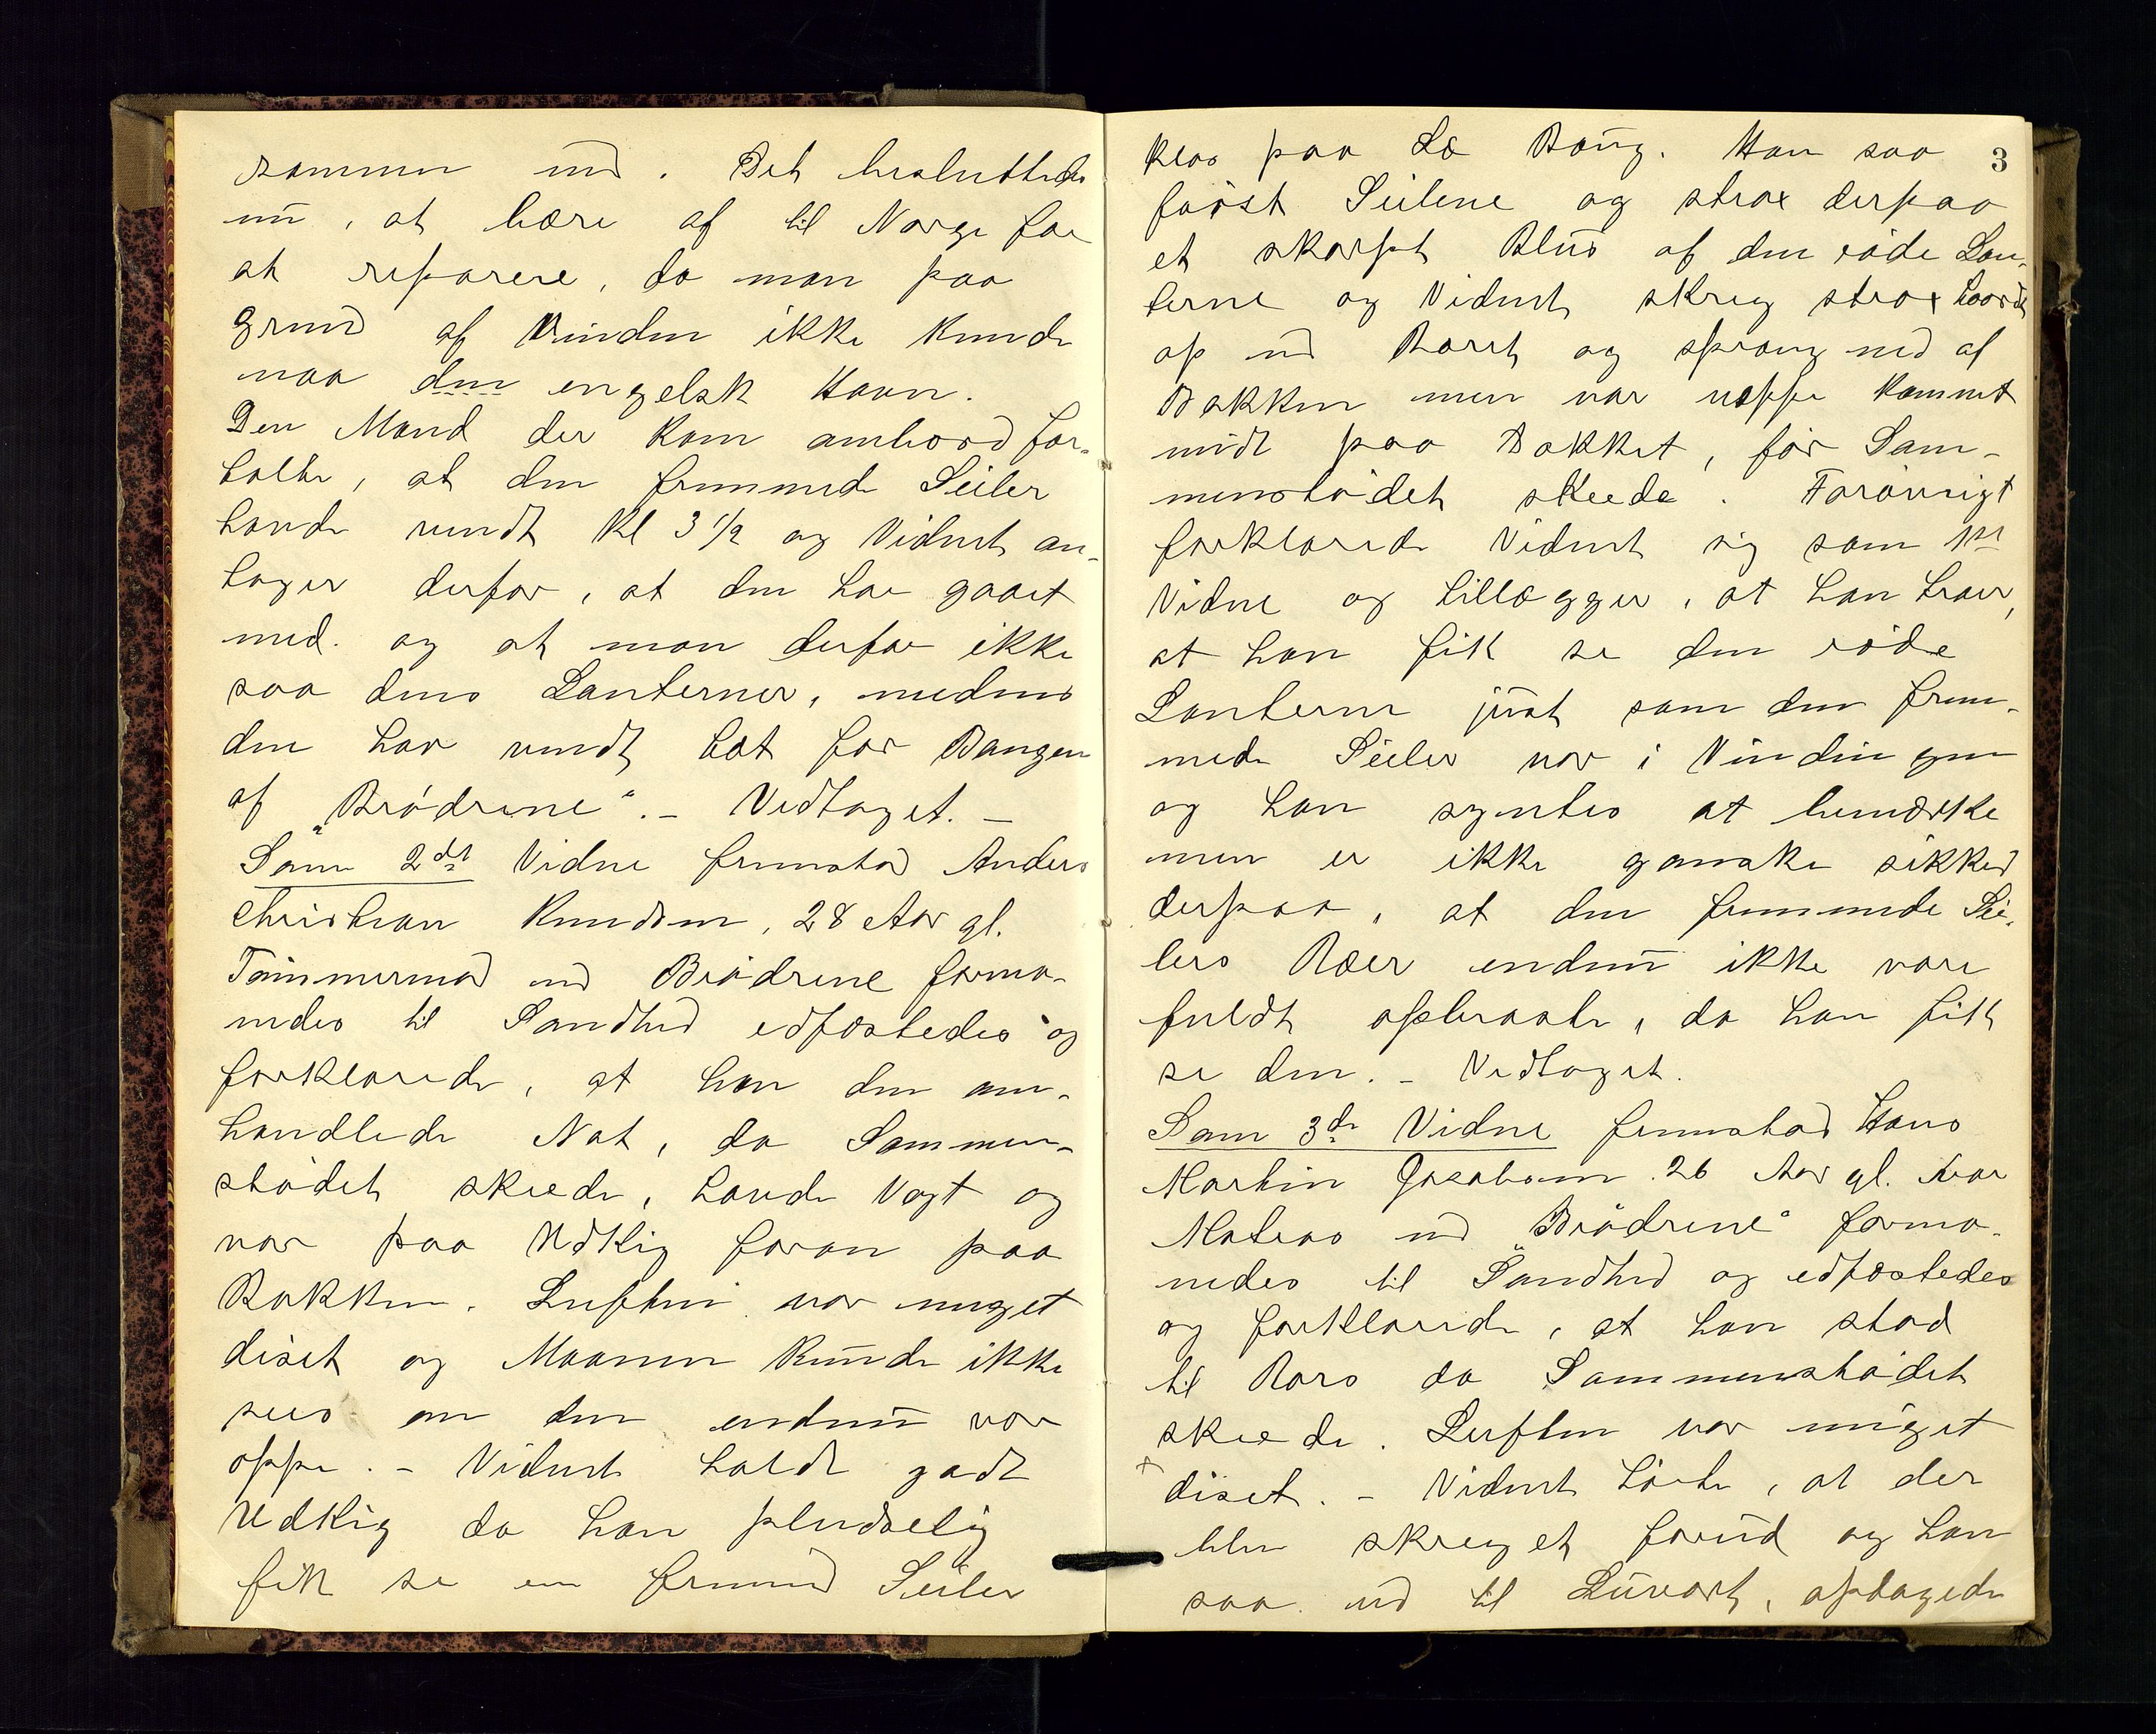 sammen med. Det besluttedes
nu, at bære af til Norge for
at reparere, da man paa
Grund af Vinden ikke kunde
naa den engelsk Havn.
Den Mand der kom ombord for-
talte, at den fremmede Seiler
havde vendt Kl 3 1/2 og Vidnet an-
tager derfor, at den har gaaet
med. og at man derfor ikke
saa dens Lanterner, medens
den har vendt tæt for Bougen
af „Brödrene“. – Vedtaget. –
Som 2det Vidne fremstod Anders
Christian Knudsen, 28 Aar gl.
Tömmermad med Brödrene forma-
nedes til Sandhed edfæstedes og
forklarede, at han den om-
handlede Nat, da Sammen-
stödet skeede, havde Vagt og
var paa Udkig foran paa
Bakken. Luften var meget
diset og Maanen kunde ikke
sees om den endnu var
oppe. – Vidnet holdt godt
Udkig da han pludselig
fik se en fremmed Seiler
3
klos paa Læ Boug. Han saa
först Seilene og strax derpaa
et skarpt Blus af den röde Lan-
terne og Vidnet skreg strax haardt
op med Roret og sprang ned af
Bakken men var neppe kommet
midt paa Dækket, för Sam-
menstödet skeede. Forövrigt
forklarede Vidnet sig som 1ste
Vidne og tillægger, at han tror,
at han fik se den röde
Lanterne just som den frem-
mede Seiler var i Vindöiet
og han syntes at bemærke
men er ikke ganske sikker
derpaa, at den fremmede Sei-
lers Ræer endnu ikke vare
fuldt opbraste, da han fik
se den. – Vedtaget.
Som 3die Vidne fremstod Hans
Martin Jacobsen. 26 Aar gl. var
Matros med „Brödrene“ forma-
nedes til Sandhed og edfæstedes
og forklarede, at han stod
til Rors da Sammenstödet
skeede. Luften var meget
diset. – Vidnet hörte, at der
blev skreget forud og han
saa ud til Luvart, opdagede